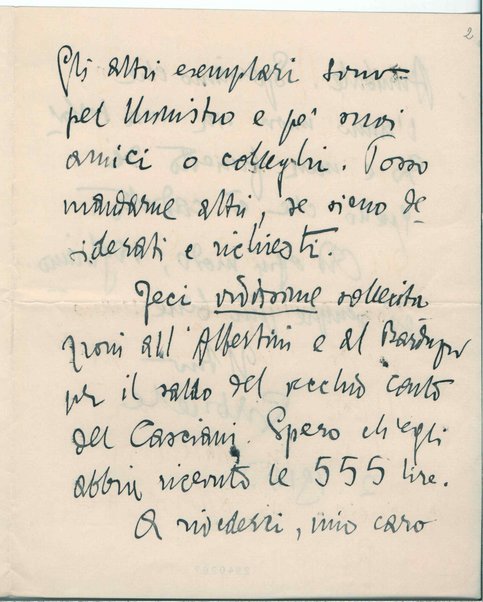 2
Gli altri esemplari sono
pel Ministro e pe' suoi
amici o colleghi. Posso
mandarne altri, se sieno de-
siderati e richiesti.
Feci vivissime sollecita
zioni all'Albertini e al
per il saldo del vecchio conto
del Casciani. Spero ch'egli
abbia ricevuto le 555 lire.
A rivederci, mio caro